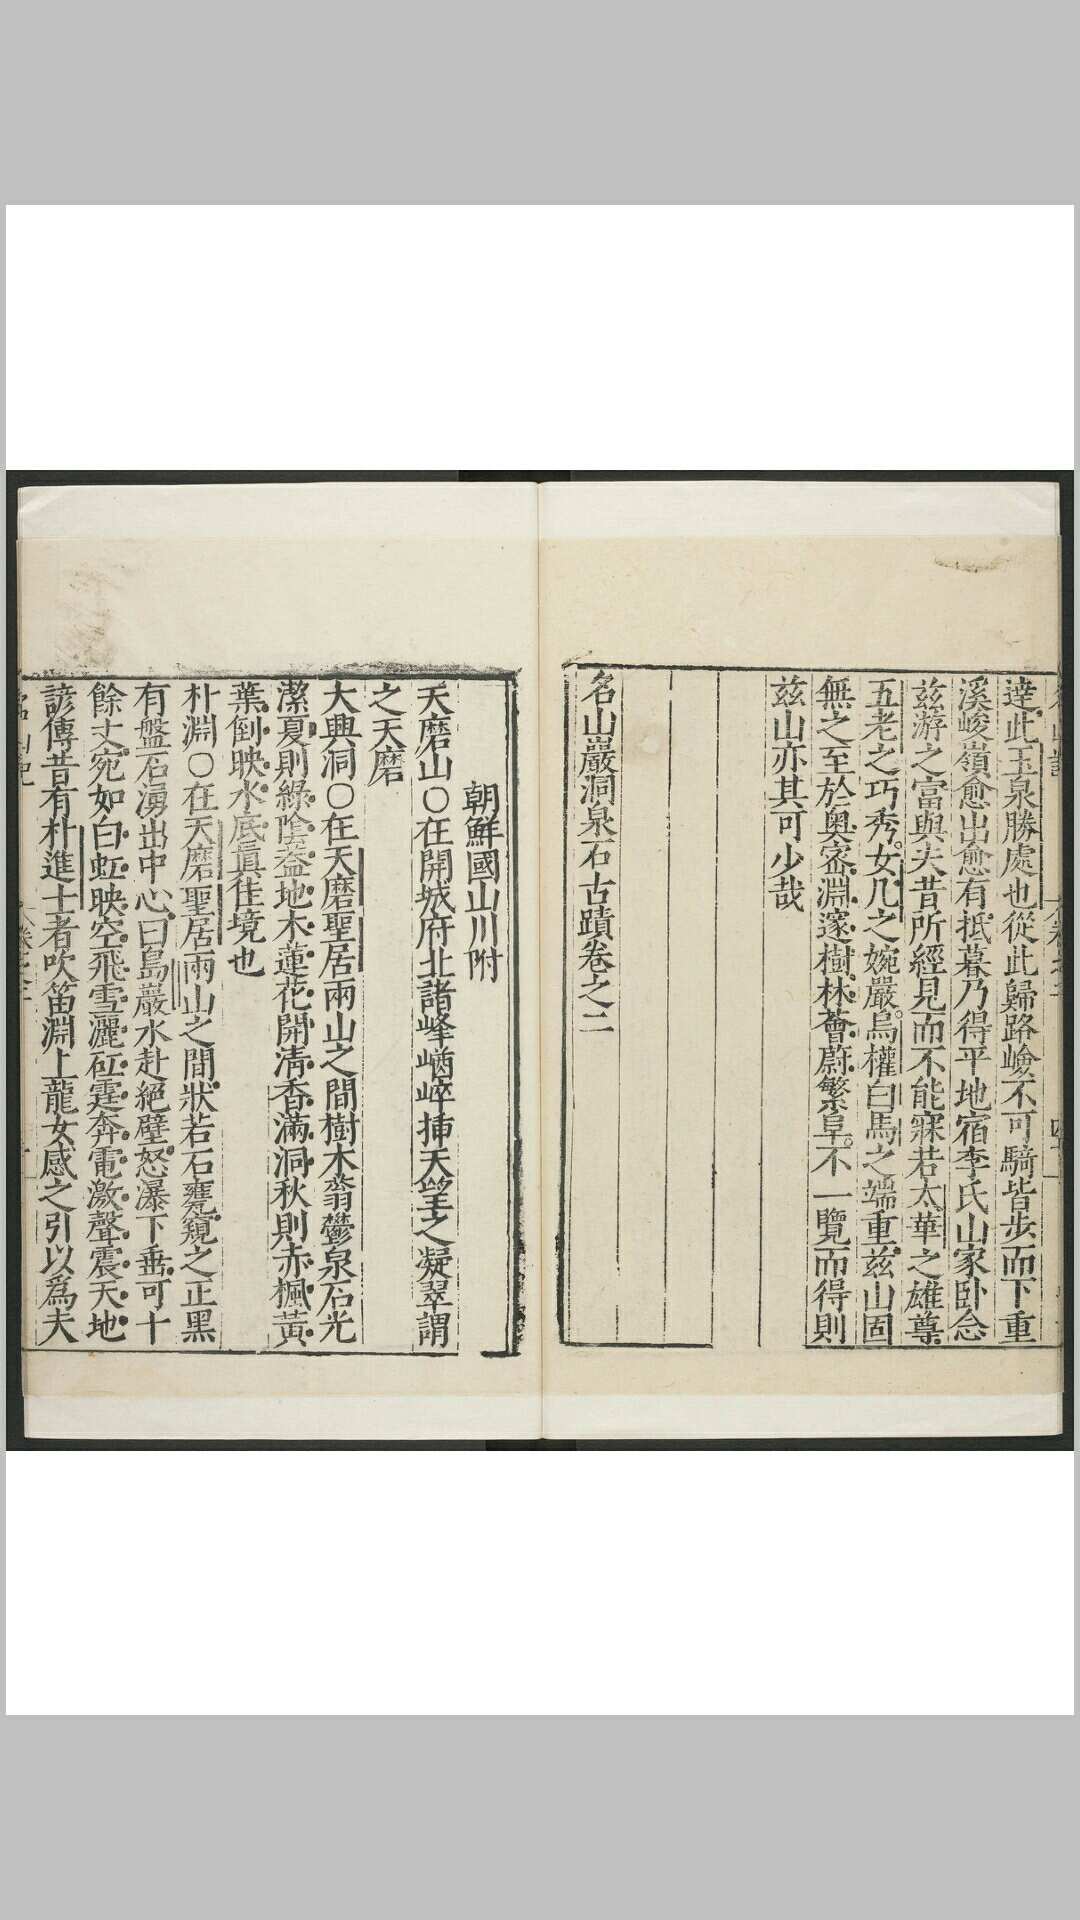 達此玉泉勝處也從此歸路嶮不可騎皆步而下重
溪峻嶺愈出愈有抵暮乃得平地宿李氏山家卧念
兹游之富與夫昔所經見而不能寐若太華之雄尊
五老之巧秀女几之婉嚴烏權白馬之端重兹山固
無之至於奥宻淵邃樹林薈蔚繁阜不一覽而得則
兹山亦其可少哉
名山巖洞泉石古蹟卷之二
朝鮮國山川附
天磨山○在開城府北諸峰崷崪揷天望之凝翠謂
之天磨
大興洞○在天磨聖居兩山之間樹木蓊鬱泉石光
潔夏則綠陰葢地木蓮花開清香滿洞秋則赤楓黄
葉倒映水底眞佳境也
朴淵○在天磨聖居兩山之間狀若石甕窺之正黑
有盤石湧出中心曰島巖水赴絕壁怒瀑下垂可十
餘丈宛如白虹映空飛雪灑矼霆奔電激聲震天地
諺傳昔有朴進士者吹笛淵上龍女感之引以爲夫